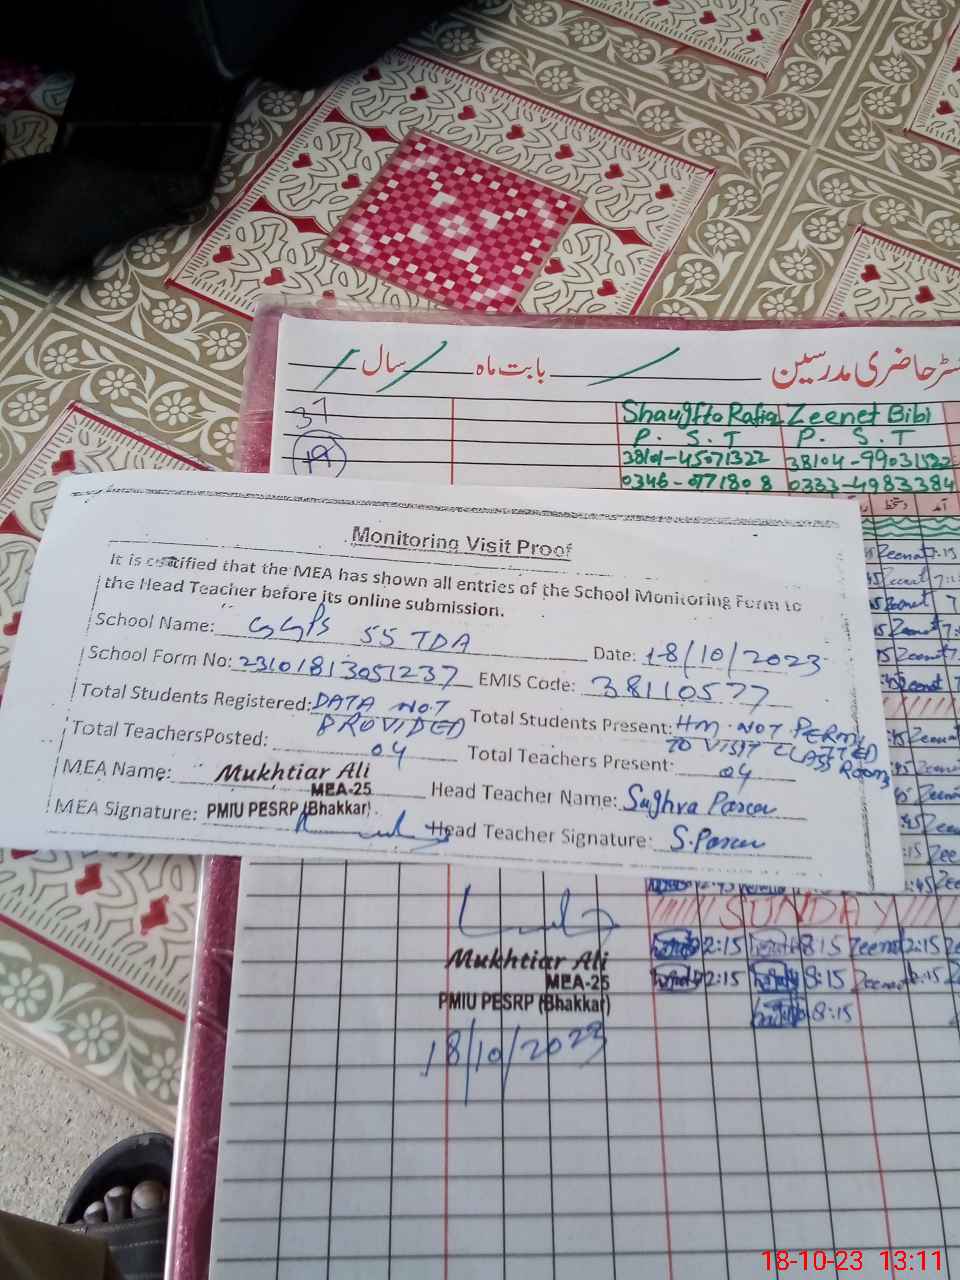 حاضری مدرسین بابت ماه سال
37
19
Shaugfta Rafiq Zeenet Bibi
P. S. T P. S. T
38101-45071322 38104-99031522
0346-0771808 0333-4983384
دستخط آمد
Monitoring Visit Proof
It is certified that the MEA has shown all entries of the School Monitoring Form to
the Head Teacher before its online submission.
School Name: GGPS 55 TDA Date: 18/10/2023
School Form No: 23101813051237 EMIS Code: 38110577
Total Students Registered: DATA NOT PROVIDED Total Students Present: HM NOT PERMITTED TO VISIT CLASSROOMS
Total TeachersPosted: 04 Total Teachers Present: 04
MEA Name: Mukhtiar Ali Head Teacher Name: Sughra
MEA-25
MEA Signature: PMIU PESRP (Bhakkar) Head Teacher Signature:
SUNDAY
2:15 8:15 Zeenat 2:15
Mukhtiar Ali 2:15 8:15 Zeenat
MEA-25
PMIU PESRP (Bhakkar) 8:15
18/10/2023
18-10-23 13:11